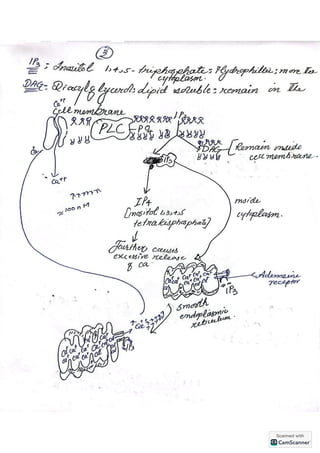 ②
IP3 : Inositol 1,3,4,5 - triphosphate : Hydrophilic ; move to
cytoplasm.
DAG- Diacylglycerol: lipid soluble: remain in the
Ca++
cell membrane
IP3
PLC
PG
DAG
[Remain inside
cell membrane.
Ca++
IP3
≈100nM
IP4
[inositol 1,3,4,5
tetrakisphosphate]
inside
cytoplasm.
Further causes
excessive release
of ca
Ca+ Ca+ Ca+
Adenosine
receptor
IP3
smooth
endoplasmic
reticulum.
Ca++
Ca+ Ca+ Ca+
IP3
Scanned with
CS CamScanner